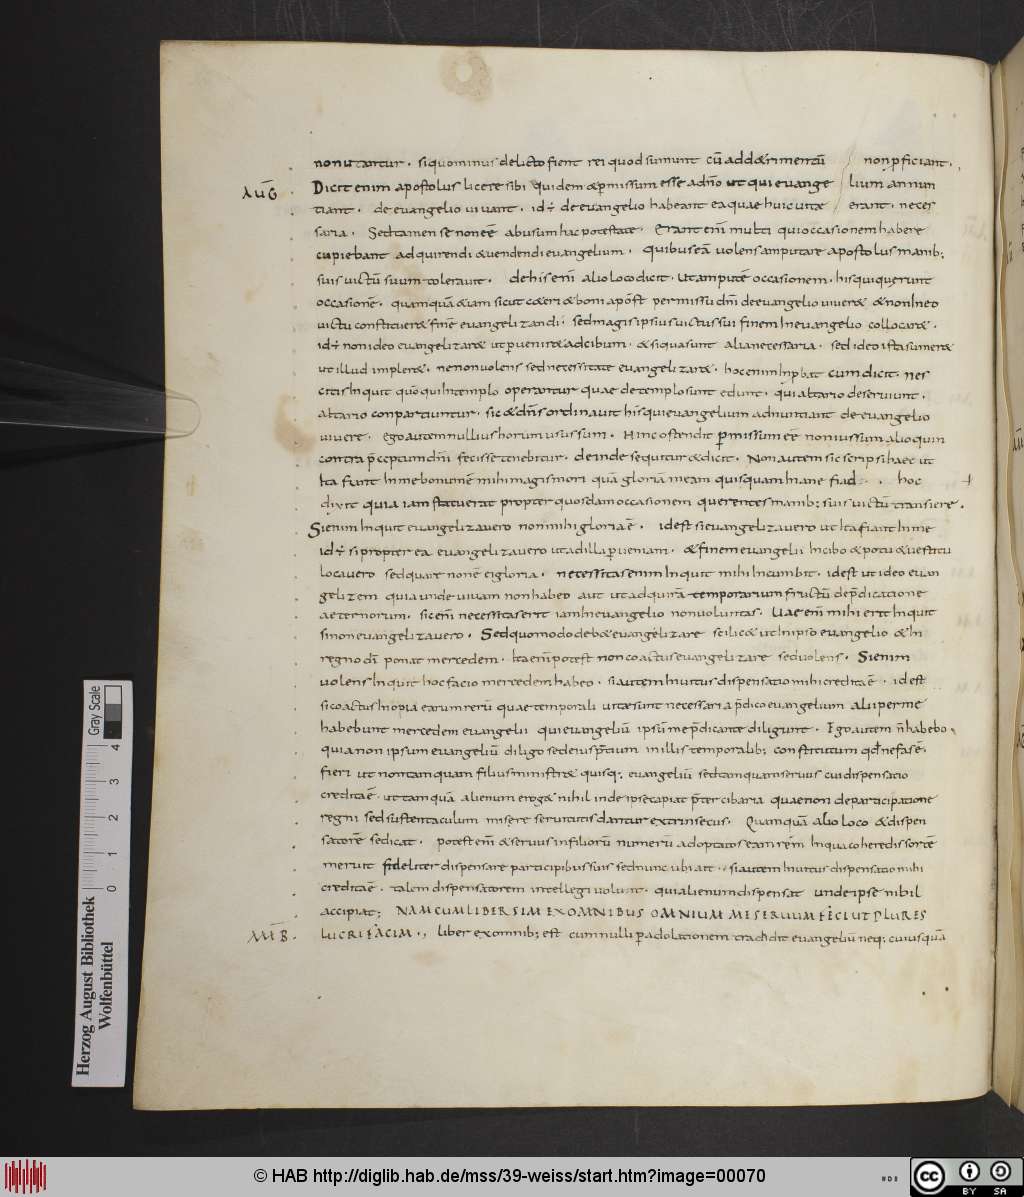 non utantur. si quominus delicto fient rei quod sumunt cū add&rimentū non ꝓficiant.
AUG Dicit enim apostolus licere sibi quidem & ꝑmissum esse a dn̄o ut qui evange lium annun
tiant. de evangelio vivant. id ÷ de evangelio habeant ea quae huic vitae erant neces
saria. Sed tamen se non eē abusum hac potestate. Erant enī multi qui occasionem habere
cupiebant adquirendi & vendendi evangelium. quibus eā volens amputare apostolus manib;
suis victū suum toleravit. de his enī alio loco dicit. Ut amputē occasionem. his qui querunt
occasionē. quamquā & iam sicut c&eri & boni apost permissu dn̄i de evangelio viver& & non in eo
victu constituer& finē evangelizandi. sed magis ipsius victus sui finem in evangelio collocar&.
id ÷ non ideo evangelizar& ut ꝑvenir& ad cibum. & si qua sunt alia necessaria. sed ideo ista sumer&
ut illud impler&. ne non volens sed necessitate evangelizar&. hoc enim inꝓbat cum dicit. nes
citis inquit quō qui in templo operantur quae de templo sunt edunt. qui altario deserviunt.
altario conpartiuntur. sic & dn̄s ordinavit his qui evangelium adnuntiant de evangelio
vivere. ego autem nullius horum usus sum. Hinc ostendit ꝑmissum eē non iussum alioquin
contra p̄ceptum dn̄i fecisse tenebitur. deinde sequitur & dicit. Non autem sic scripsi haec ut
ita fiant in me bonum ē mihi magis mori quā gloriā meam quisquam inane fiad. hoc +
dixit quia iam statuerat propter quosdam occasionem querentes manib; suis victū transiere.
Si enim inquit evangelizavero non mihi gloria ē. id est si evangelizavero ut ita fiant in me
id ÷ si propter ea evangelizavero ut ad illa ꝑveniam. & finem evangelii in cibo & potu & vestitu
locavero sed quare non ē ei gloria. necessitas enim inquit mihi incumbit. id est ut ideo evan
gelizem quia unde vivam non habeo aut ut adquirā temporarium fructū de p̄dicatione
aeternorum. sic enī necessitas erit iam in evangelio non voluntas. Vae enī mihi erit inquit
si non evangelizavero. Sed quomodo deb& evangelizare scilic& ut in ipso evangelio & in
regno dī ponat mercedem. ita enī potest non coactus evangelizare sed volens. Si enim
volens inquit hoc facio mercedem habeo. si autem invitus dispensatio mihi credita ē. id est
si coactus inopia earum rerū quae temporali vitae sunt necessaria p̄dico evangelium alii per me
habebunt mercedem evangelii qui evangeliū ipsū me p̄dicante diligunt. Ego autem n̄ habebo
quia non ipsum evangeliū diligo sed eius p̄tium in illis temporalib; constitutum qđ nefas ē.
fieri ut non tamquam filius ministr& quisq; evangeliū sed tamquam servus cui dispensatio
credita ē. ut tamquā alienum erog& nihil inde ipse capiat p̄ter cibaria quae non de participatione
regni sed sustentaculum misere servitutis dantur extrinsecus. Quamquā alio loco & dispen
satorē se dicat. potest enī & servus in filiorū numerū adoptatos eam rem in qua coheredis sortē
meruit fideliter dispensare participibus suis sed nunc ubi ait. si autem invitus dispensatio mihi
credita ē. talem dispensatorem intellegi voluit. qui alienum dispensat unde ipse nihil
accipiat; NAM CUM LIBER SIM EX OMNIBUS OMNIUM ME SERVUM FECI UT PLURES
AMB. LUCRIFACIAM., liber ex omnib; est cum nulli ꝑ adolationem tradidit evangeliū neq; cuiusquā
Herzog August Bibliothek
Wolfenbüttel
0 1 2 3 4
Gray Scale
© HAB http://diglib.hab.de/mss/39-weiss/start.htm?image=00070
cc BY SA